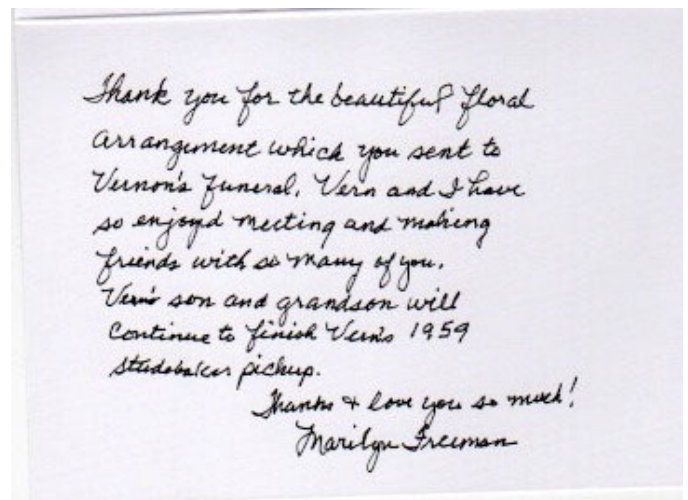 Thank you for the beautiful floral
arrangement which you sent to
Vernon's funeral. Vern and I have
so enjoyd meeting and making
friends with so many of you.
Vern's son and grandson will
Continue to finish Vern's 1959
Studebaker pickup.
Thanks & love you so much!
Marilyn Freeman